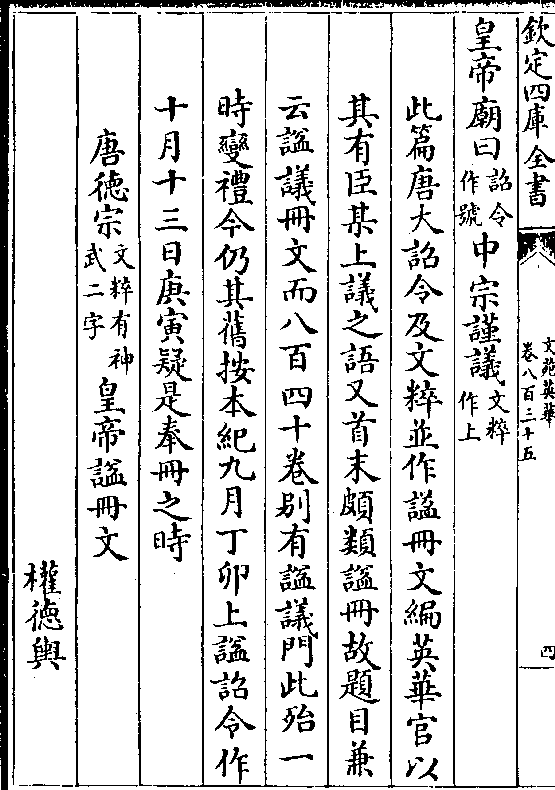 欽定四庫全書
文苑英華
卷八百三十五
四
皇帝廟曰詔令作號中宗謹議文粹作上
此篇唐大詔令及文粹並作諡冊文編英華官以
其有臣某上議之語又首末頗類諡冊故題目兼
云諡議冊文而八百四十卷别有諡議門此殆一
時變禮今仍其舊按本紀九月丁卯上諡詔令作
十月十三日庚寅疑是奉冊之時
唐德宗文粹有神武二字皇帝諡冊文
權德輿